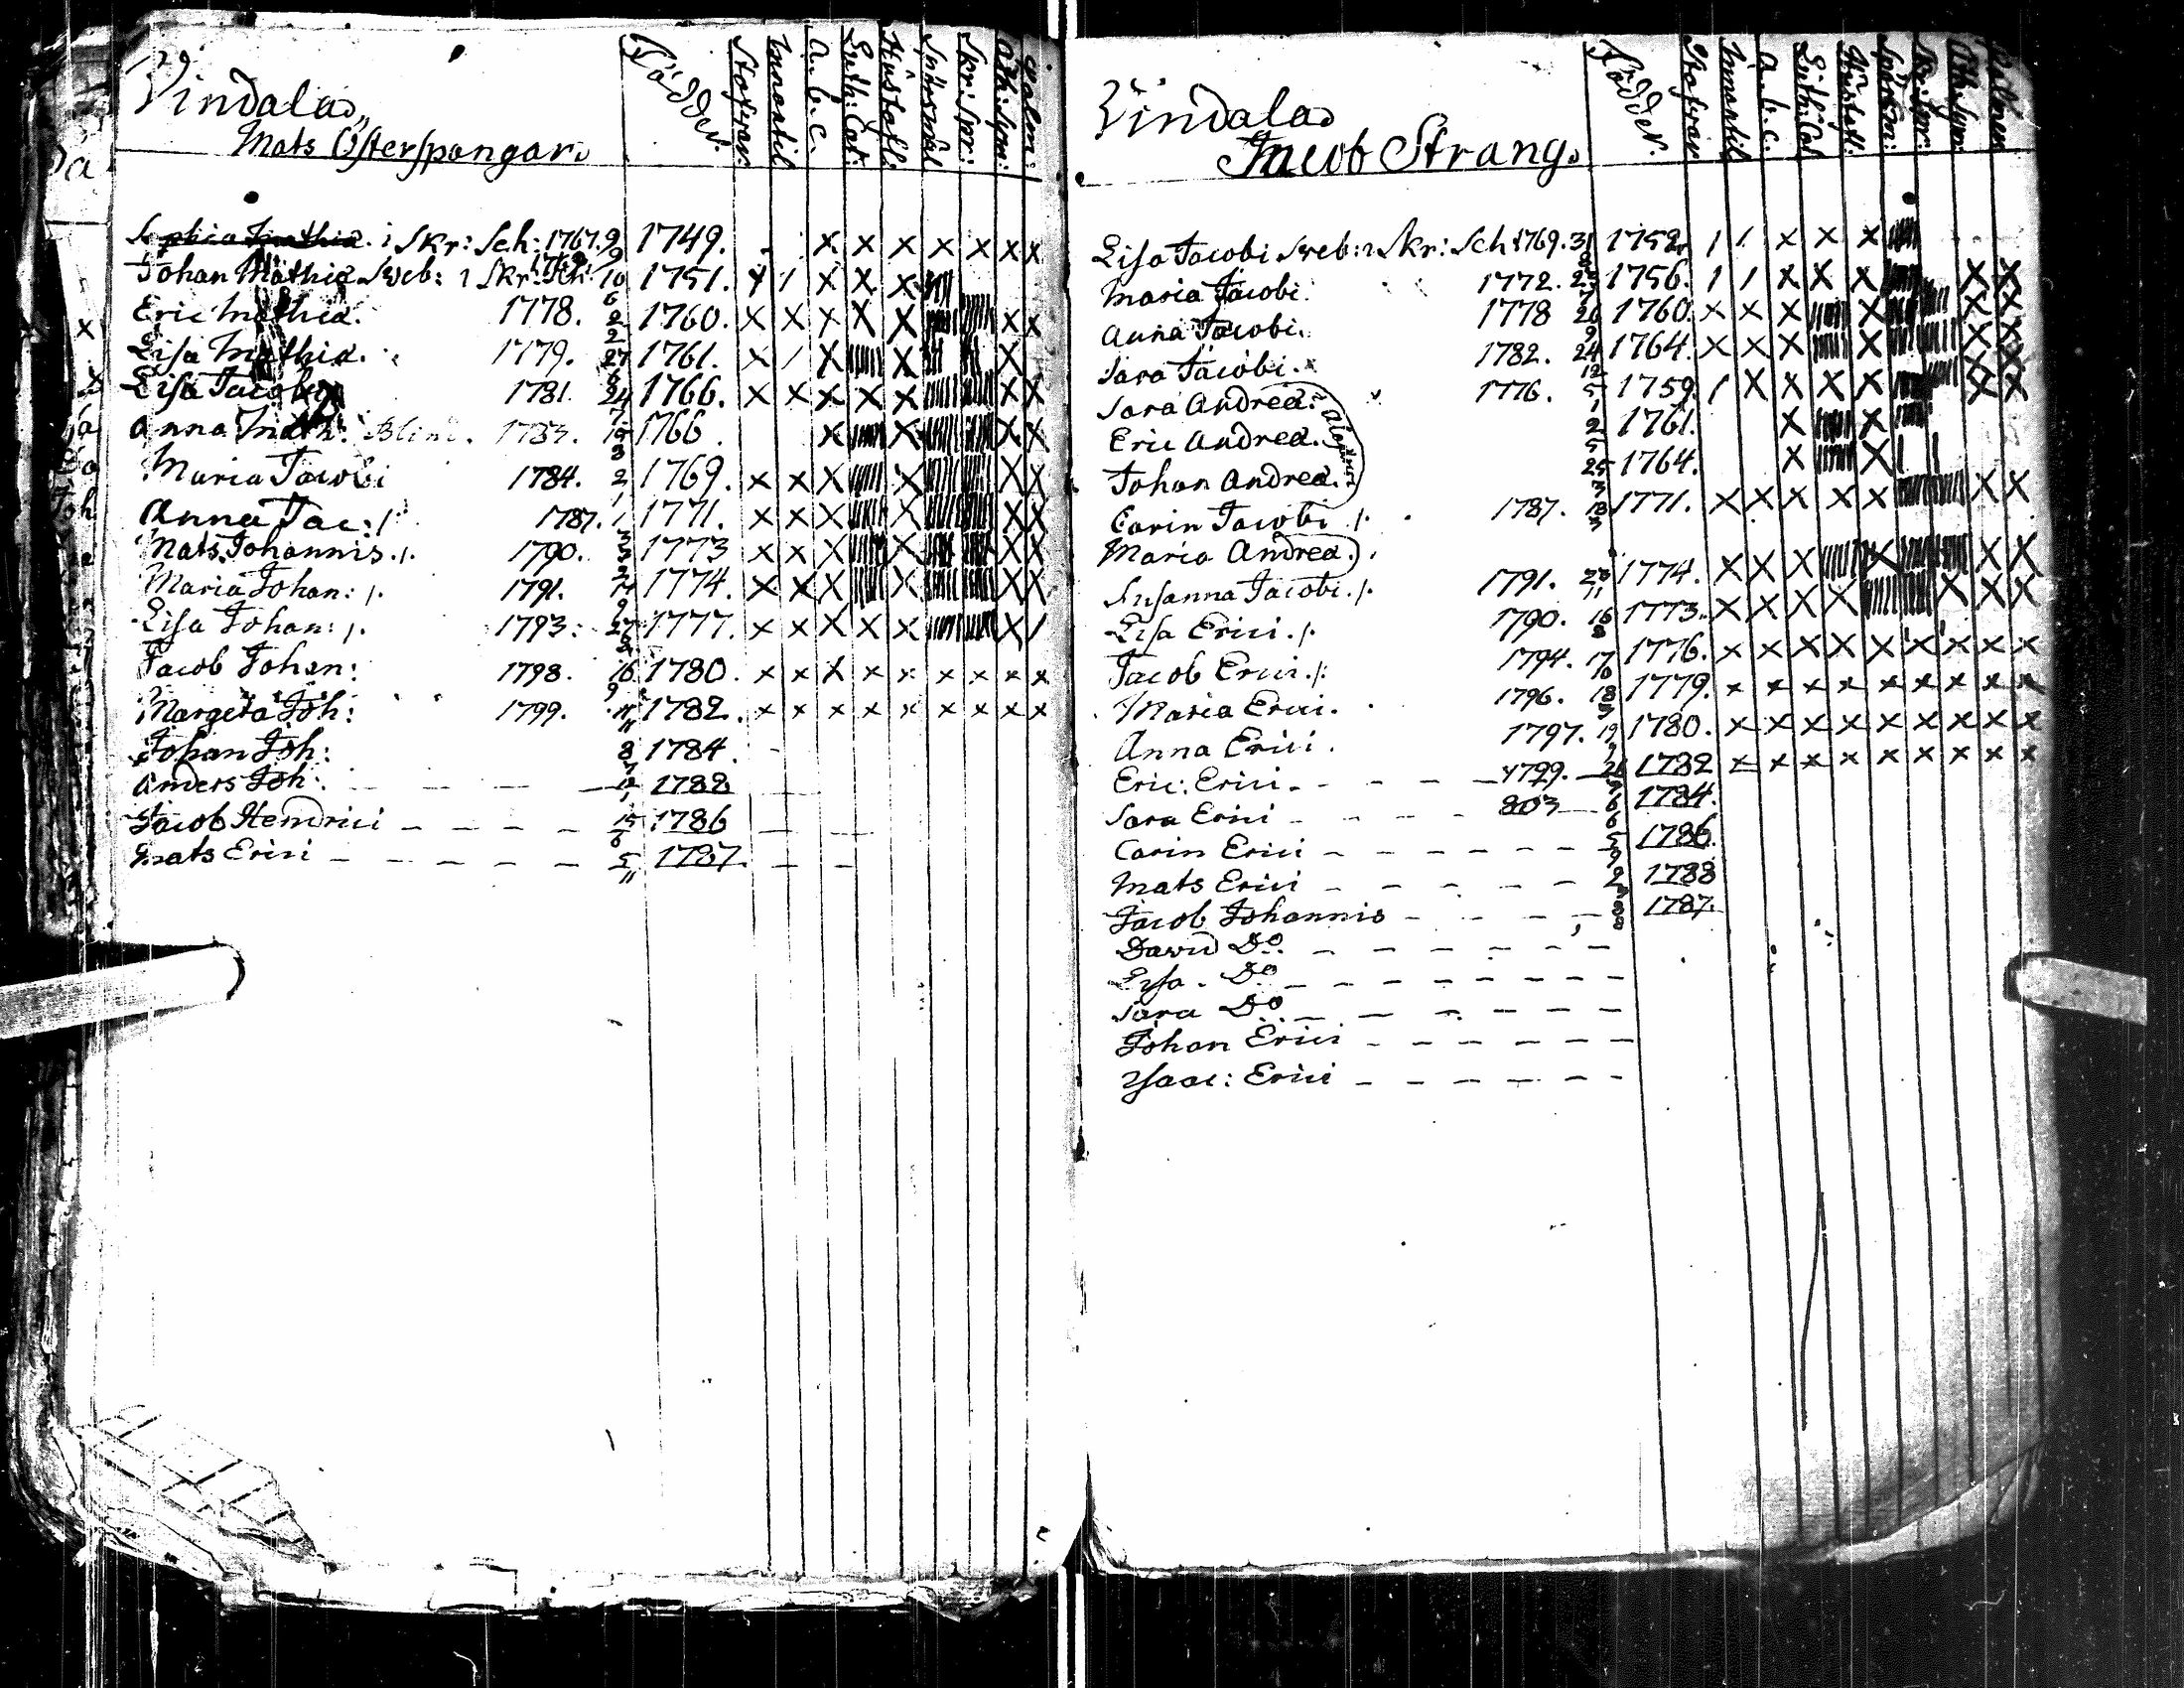 Vindala
Mats Österspongar.
Födder. Stafvar Innantil a.b.c. Luth: Cat: Hustafl. Spörsmål Skr: Spr: Ath: Sym: Psalm:
Sophia Mathiæ. i Skr: Sch: 1767. 9 1749. x x x x x x x
Johan Mathiæ Sveb: i Skr: Sch: 10 1751. x x x
Eric Mathiæ. 1778. 1760. x x x x x x x
Lisa Mathiæ. 1779. 27 1761. x / x x x
Lisa Jacobi 1781. 24 1766. x x x x x x x
Anna Math: Blind. 1783. 1766. x x x x
Maria Jacobi 1784. 2 1769. x x x x x x
Anna Jac: /. 1787. 1 1771. x x x x x x
Mats Johannis. /. 1790. 1773 x x x x x x
Maria Johan: /. 1791. 1774. x x x x x x
Lisa Johan: /. 1793. 27 1777. x x x x x x /
Jacob Johan: 1798. 16 1780. x x x x x x x x x
Margeta Joh: 1799. 1782. x x x x x x x x x
Johan Joh: 8 1784.
Anders Joh: 1782
Jacob Hendrici 15 1786
Mats Erici 5/11 1787.
Vindala
Jacob Strang.
Födder. Stafvar Innantil a.b.c. Luth: Cat Hustafl: Spörsm: Skr: Spr: Ath: Sym: Psalmer
Lisa Jacobi Sveb: i Skr: Sch 1769. 31 1752. / / x x x
Maria Jacobi. 1772. 1756. / / x x x x x
Anna Jacobi. 1778 26 1760. x x x x x x
Sara Jacobi. 1782. 24 1764. x x x x x x
Sara Andreæ. 1776. 5 1759. / x x x x x x
Eric Andreæ. 2 1761. x x
Johan Andreæ. 25 1764. x x
Carin Jacobi /. 1787. 1771. x x x x x x x
Maria Andreæ.
Susanna Jacobi. /. 1791. 1774. x x x x x x
Lisa Erici. /. 1790. 16 1773. x x x x x x x
Jacob Erici. /. 1794. 17 1776. x x x x x x x x x
Maria Erici. 1796. 18 1779. x x x x x x x x x
Anna Erici. 1797. 19 1780. x x x x x x x x x
Eric: Erici. 1799. 1782 x x x x x x x x x
Sara Erici 803 6 1784.
Carin Erici 5 1786.
Mats Erici 2 1788
Jacob Johannis 1787.
David Do.
Lisa. Do
Sara Do
Johan Erici
Isaac: Erici